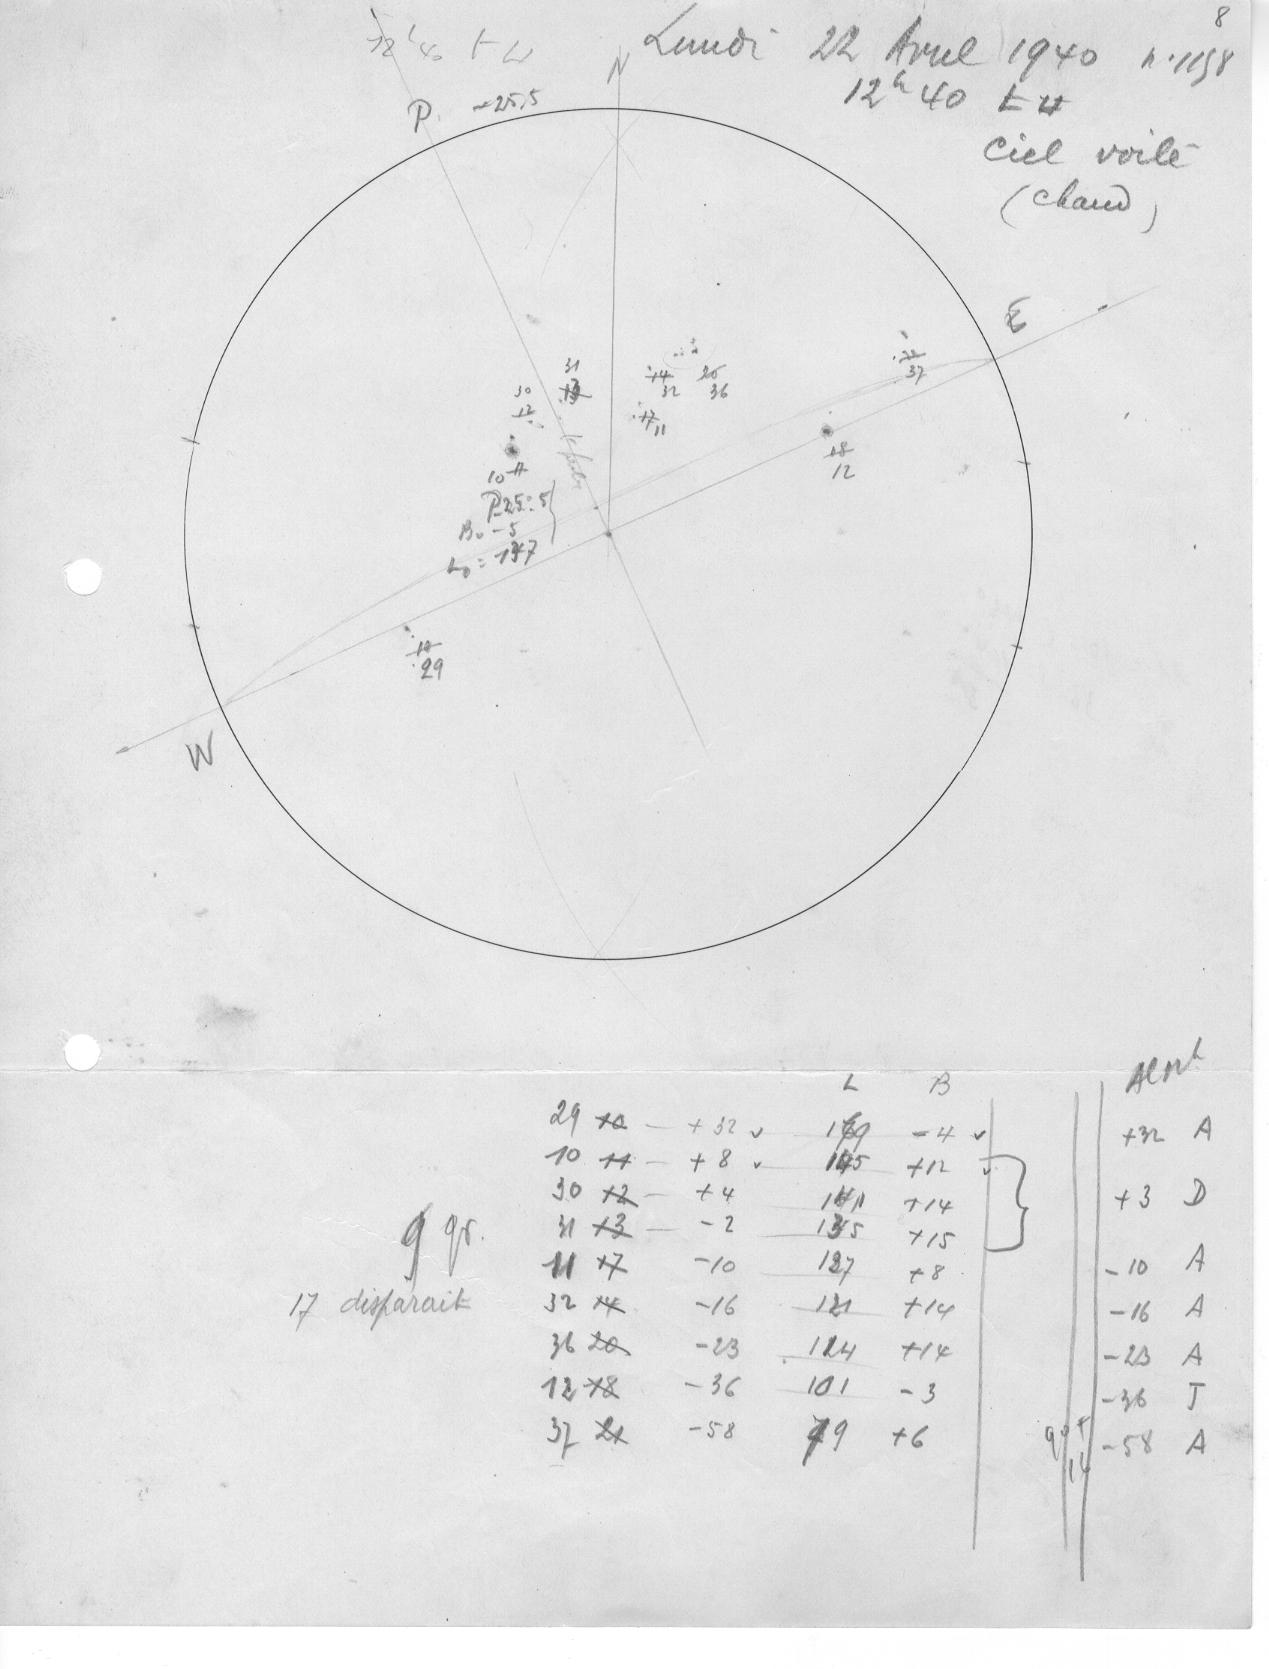 8
Lundi 22 Avril 1940 n. 1158
12h 40 t u
N
P. -25,5
Ciel voilé
(chaud)
E
31
13
30
12
14
32
20
36
37
17
11
18
12
10 11
P-25.5
B0 -5
L0 = 137
10
29
W
L B
29 10 — +32 169 -4 +32 A
10 11 — +8 145 +12
30 12 — +4 141 +14 +3 D
31 13 — -2 135 +15
9 gr.
11 17 -10 127 +8 -10 A
17 disparait
32 14 -16 121 +14 -16 A
36 20 -23 114 +14 -23 A
12 18 -36 101 -3 -36 J
37 21 -58 79 +6 -58 A